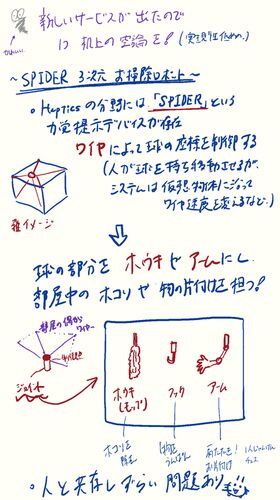 新しいサービスが出たので
1つ 机上の空論を!(実現性低め。)
~SPIDER 3次元 お掃除ロボット~
○Hapticsの分野には「SPIDER」という
力覚提示デバイスが存在
ワイヤによって球の座標を制御する
(人が球を持ち移動させるが、
システムは仮想物体によって
ワイヤ速度を変えるなど。)
雑イメージ
球の部分を ホウキ や アーム にし、
部屋中の ホコリ や 物の片付けを担う!
部屋の隅から
ワイヤー
ジョイント
ホウキ
(モップ)
フック
アーム
ホコリを
除去
物を
うんぱん
お片付け
○人と共存しずらい 問題あり